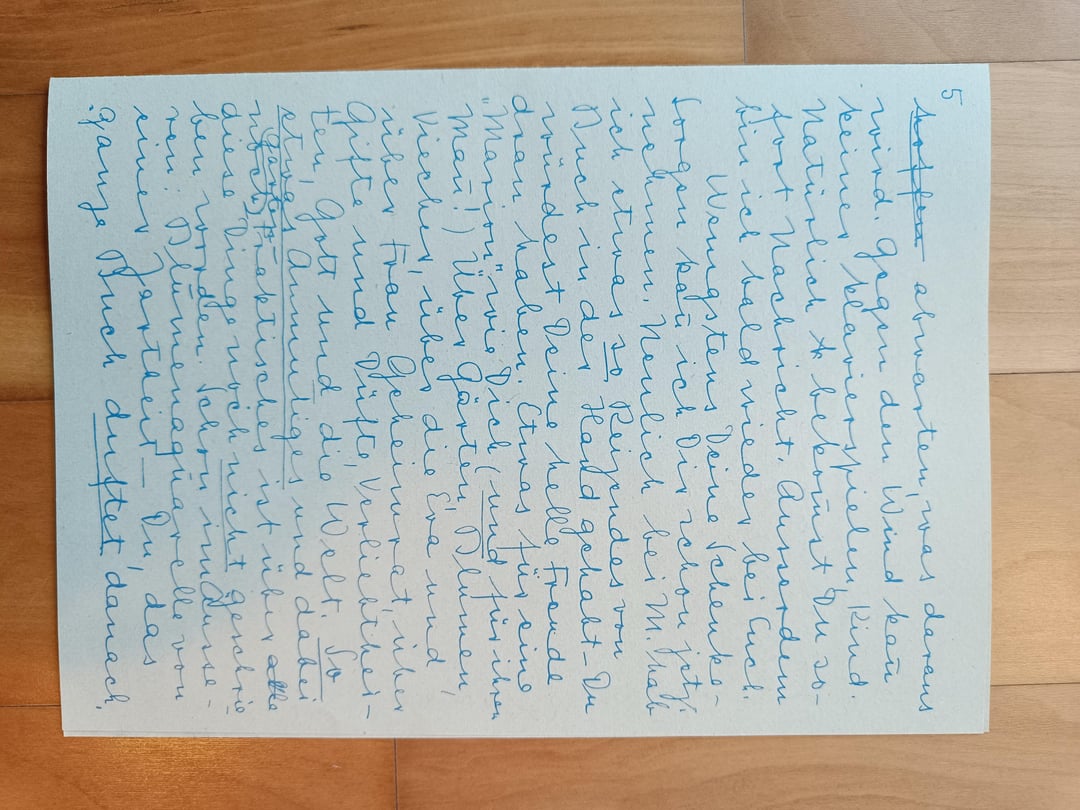 5
hoffen abwarten, was daraus
wird. Gegen den Wind kan̄
keiner Klavierspielen, Kind.
Natürlich bekom̄st Du so-
fort Nachricht. Ausserdem
bin ich bald wieder bei Euch.
Wenigstens Deine Schenke-
sorgen kan̄ ich Dir schon jetzt
nehmen. Neulich bei M. hab
ich etwas so Reizendes von
Buch in der Hand gehabt – Du
würdest Deine helle Freude
dran haben. Etwas für eine
"Marion" wie Dich (und für ihren
Man̄!) Über Gärten, Blumen,
Viecher, über die Eva und
über Frau Geheimrat, über
Gifte und Düfte, Verliebthei-
ten, Gott und die Welt. So
etwas Anmutiges und dabei
noch Praktisches ist über alle
Garten
diese Dinge noch nicht geschrie-
ben worden. Schon indusse-
rei: Blumenaquarelle von
einer Zartheit – Du, das
ganze Buch duftet danach.